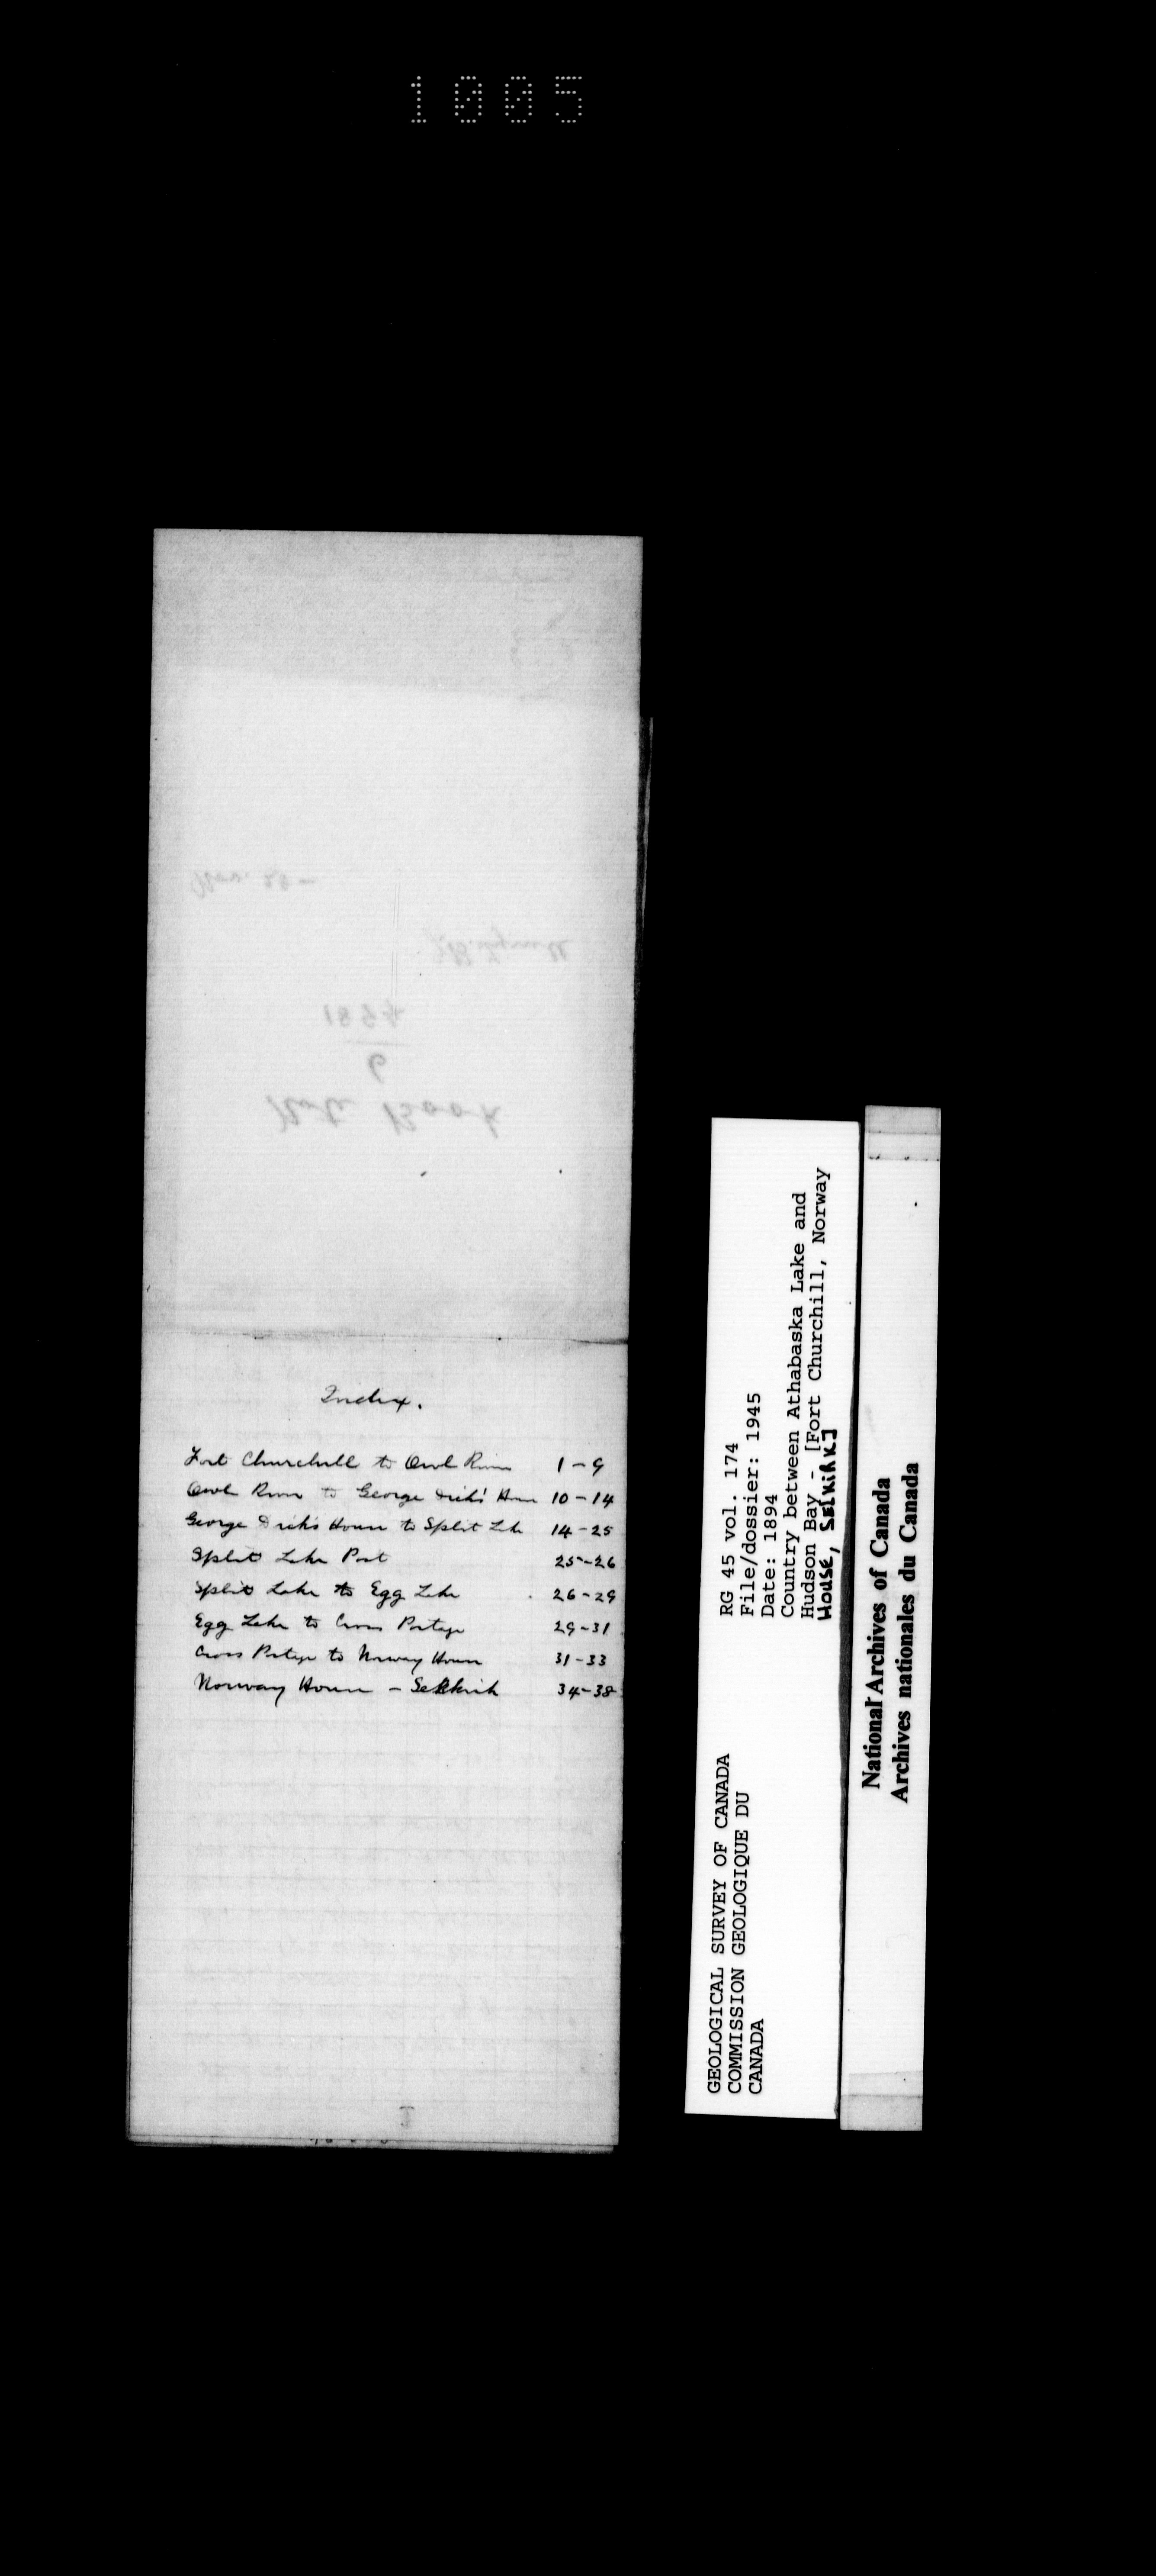 1005
Nov. 28 -
J.B. Tyrrell
1894
6
Note Book
Index.
Fort Churchill to Owl River 1-9
Owl River to George Dick's House 10-14
George Dick's House to Split Lake 14-25
Split Lake Post 25-26
Split Lake to Egg Lake 26-29
Egg Lake to Cross Portage 29-31
Cross Portage to Norway House 31-33
Norway House - Selkirk 34-38
GEOLOGICAL SURVEY OF CANADA
COMMISSION GEOLOGIQUE DU
CANADA
RG 45 vol. 174
File/dossier: 1945
Date: 1894
Country between Athabaska Lake and
Hudson Bay - [Fort Churchill, Norway
House, Selkirk]
National Archives of Canada
Archives nationales du Canada